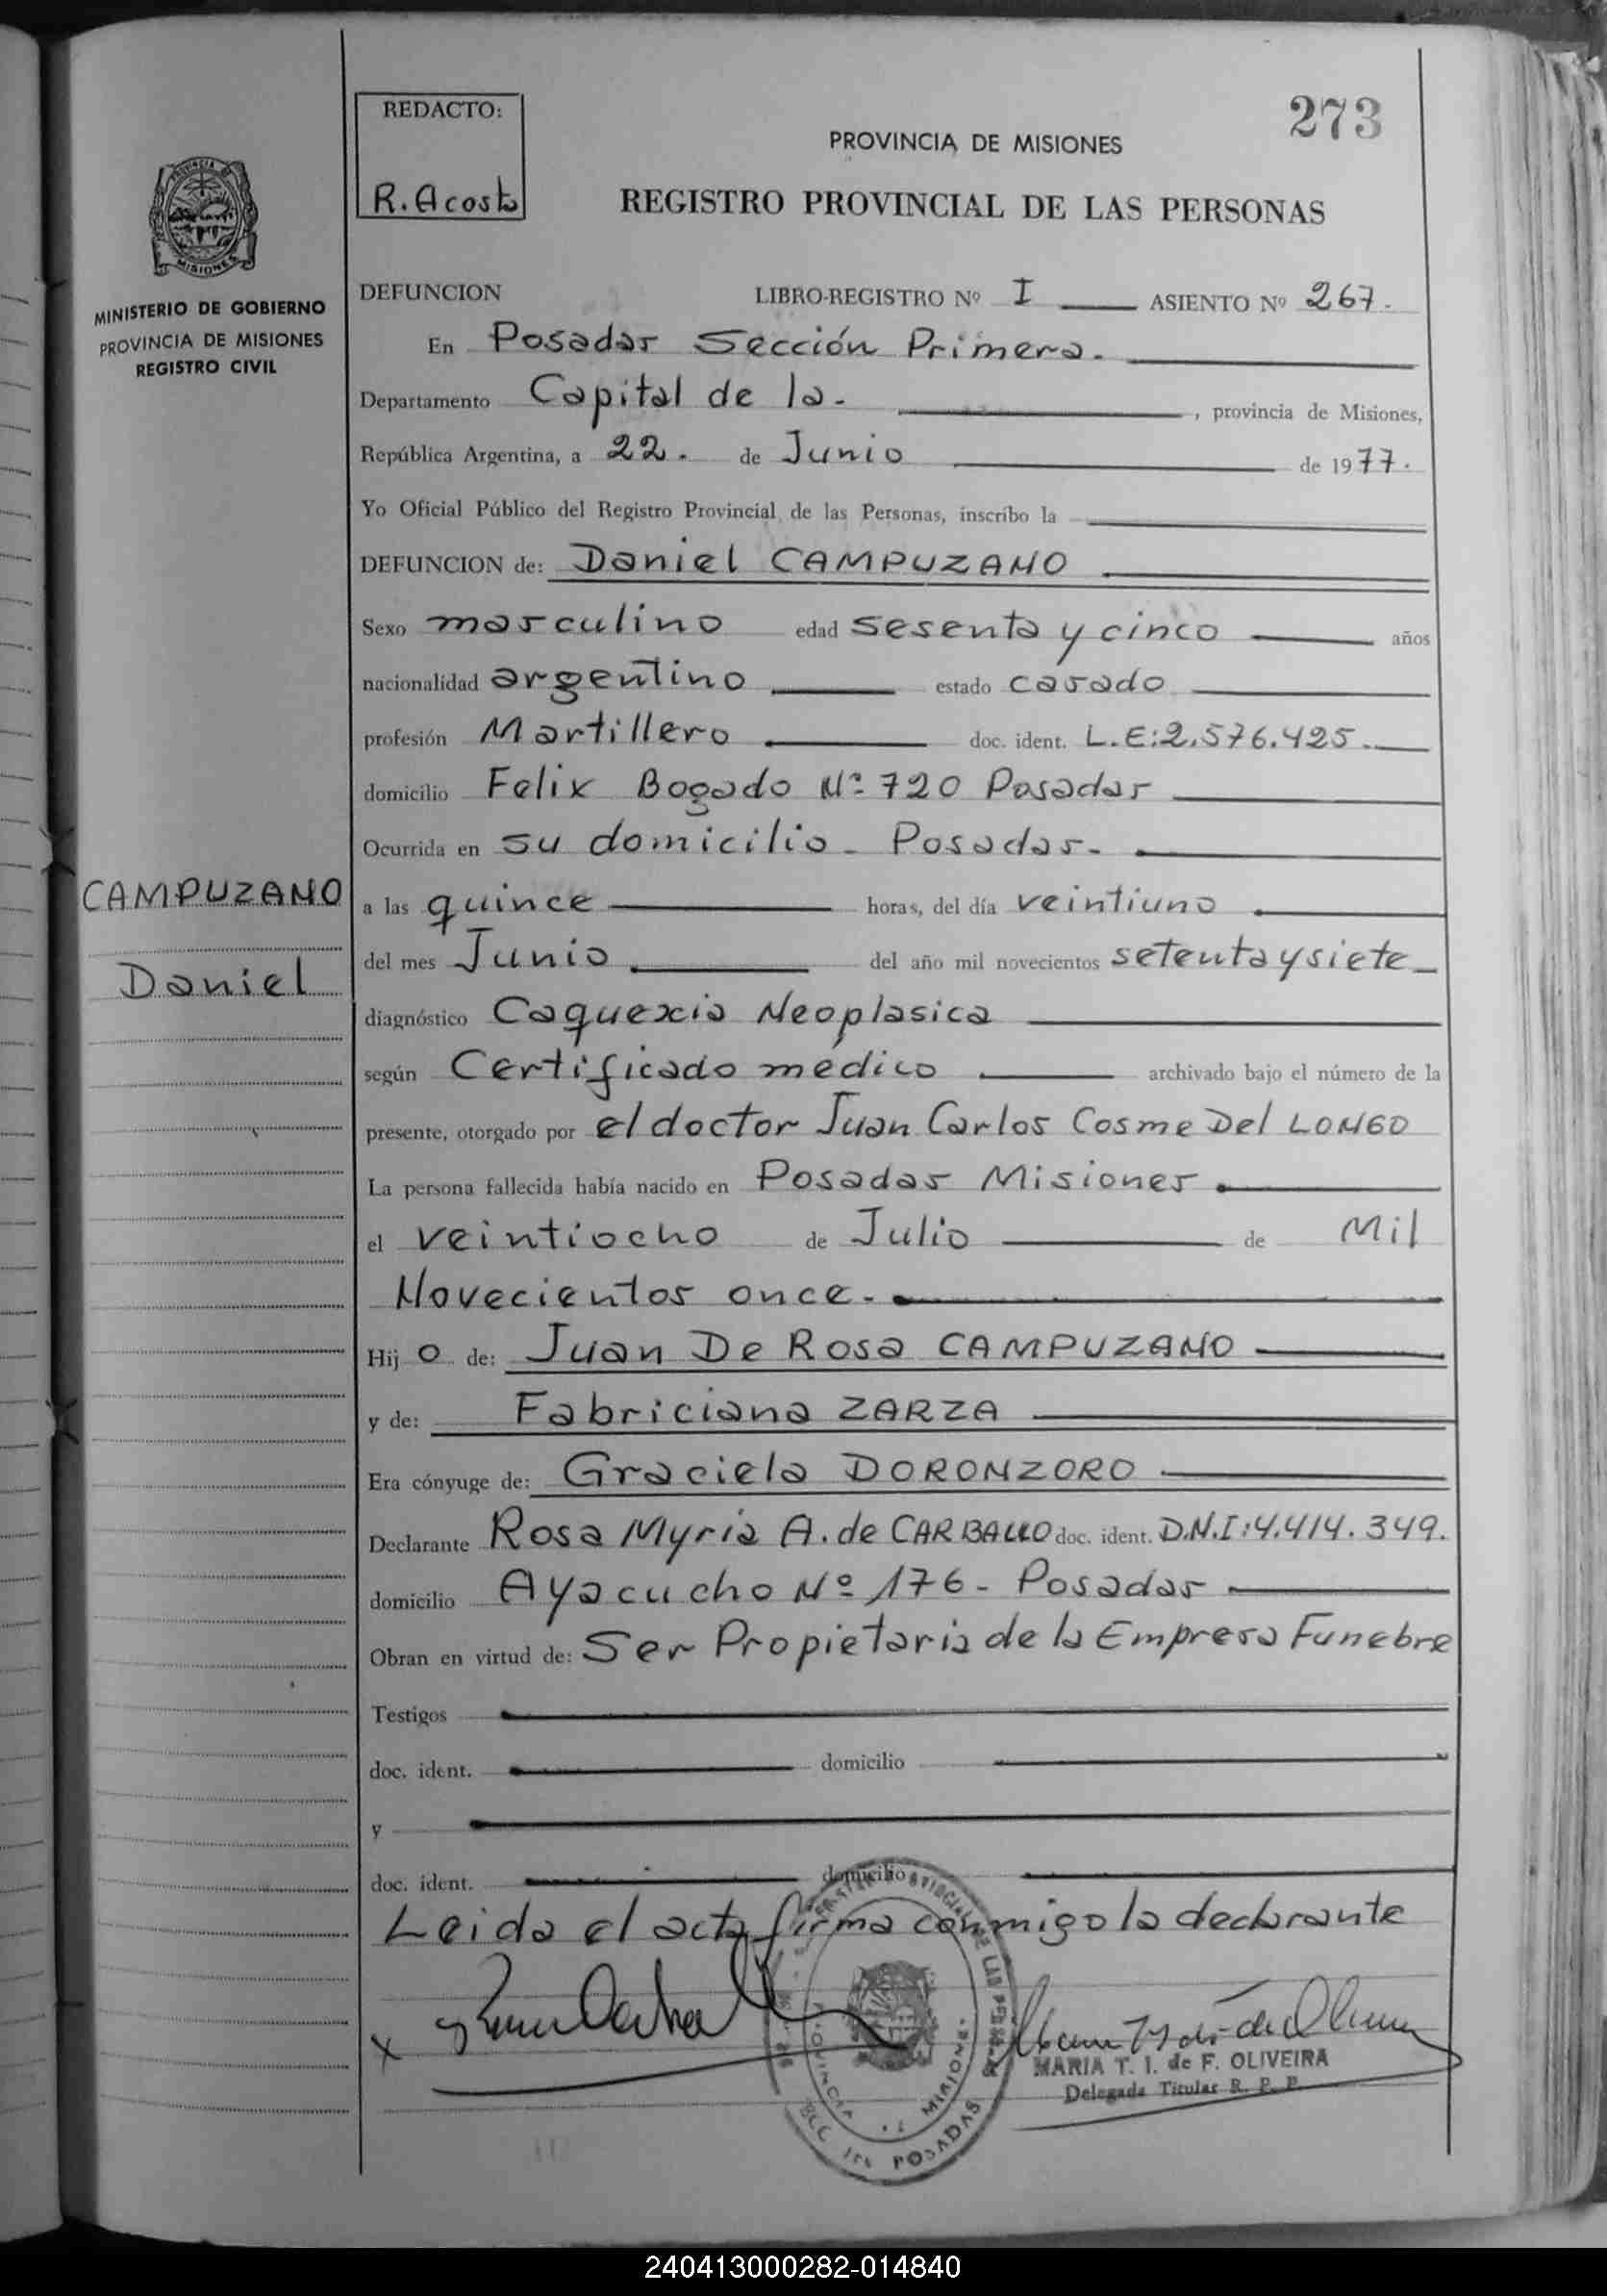 273
REDACTO:
R. Acosta
PROVINCIA DE MISIONES
REGISTRO PROVINCIAL DE LAS PERSONAS
PROVINCIA DE
MISIONES
MINISTERIO DE GOBIERNO
PROVINCIA DE MISIONES
REGISTRO CIVIL
CAMPUZANO
Daniel
DEFUNCION LIBRO-REGISTRO Nº I ASIENTO Nº 267.
En Posadas Sección Primera.
Departamento Capital de la. , provincia de Misiones,
República Argentina, a 22. de Junio de 1977.
Yo Oficial Público del Registro Provincial de las Personas, inscribo la
DEFUNCION de: Daniel CAMPUZANO
Sexo masculino edad sesenta y cinco años
nacionalidad argentino estado casado
profesión Martillero doc. ident. L.E:2.576.425.
domicilio Felix Bogado Nº 720 Posadas
Ocurrida en su domicilio - Posadas.
a las quince horas, del día veintiuno
del mes Junio del año mil novecientos setenta y siete
diagnóstico Caquexia Neoplasica
según Certificado medico archivado bajo el número de la
presente, otorgado por el doctor Juan Carlos Cosme Del LONGO
La persona fallecida había nacido en Posadas Misiones
el veintiocho de Julio de Mil
Novecientos once.
Hij o de: Juan De Rosa CAMPUZANO
y de: Fabriciana ZARZA
Era cónyuge de: Graciela DORONZORO
Declarante Rosa Myria A. de CARBALLO doc. ident. D.N.I:4.414.349.
domicilio Ayacucho Nº 176 - Posadas
Obran en virtud de: Ser Propietaria de la Empresa Funebre
Testigos
doc. ident. domicilio
y
doc. ident. domicilio
Leida el acta firma conmigo la declarante
x
PROVINCIA DE MISIONES
POSADAS
MARIA T. I. de F. OLIVEIRA
Delegada Titular R. P. P.
240413000282-014840